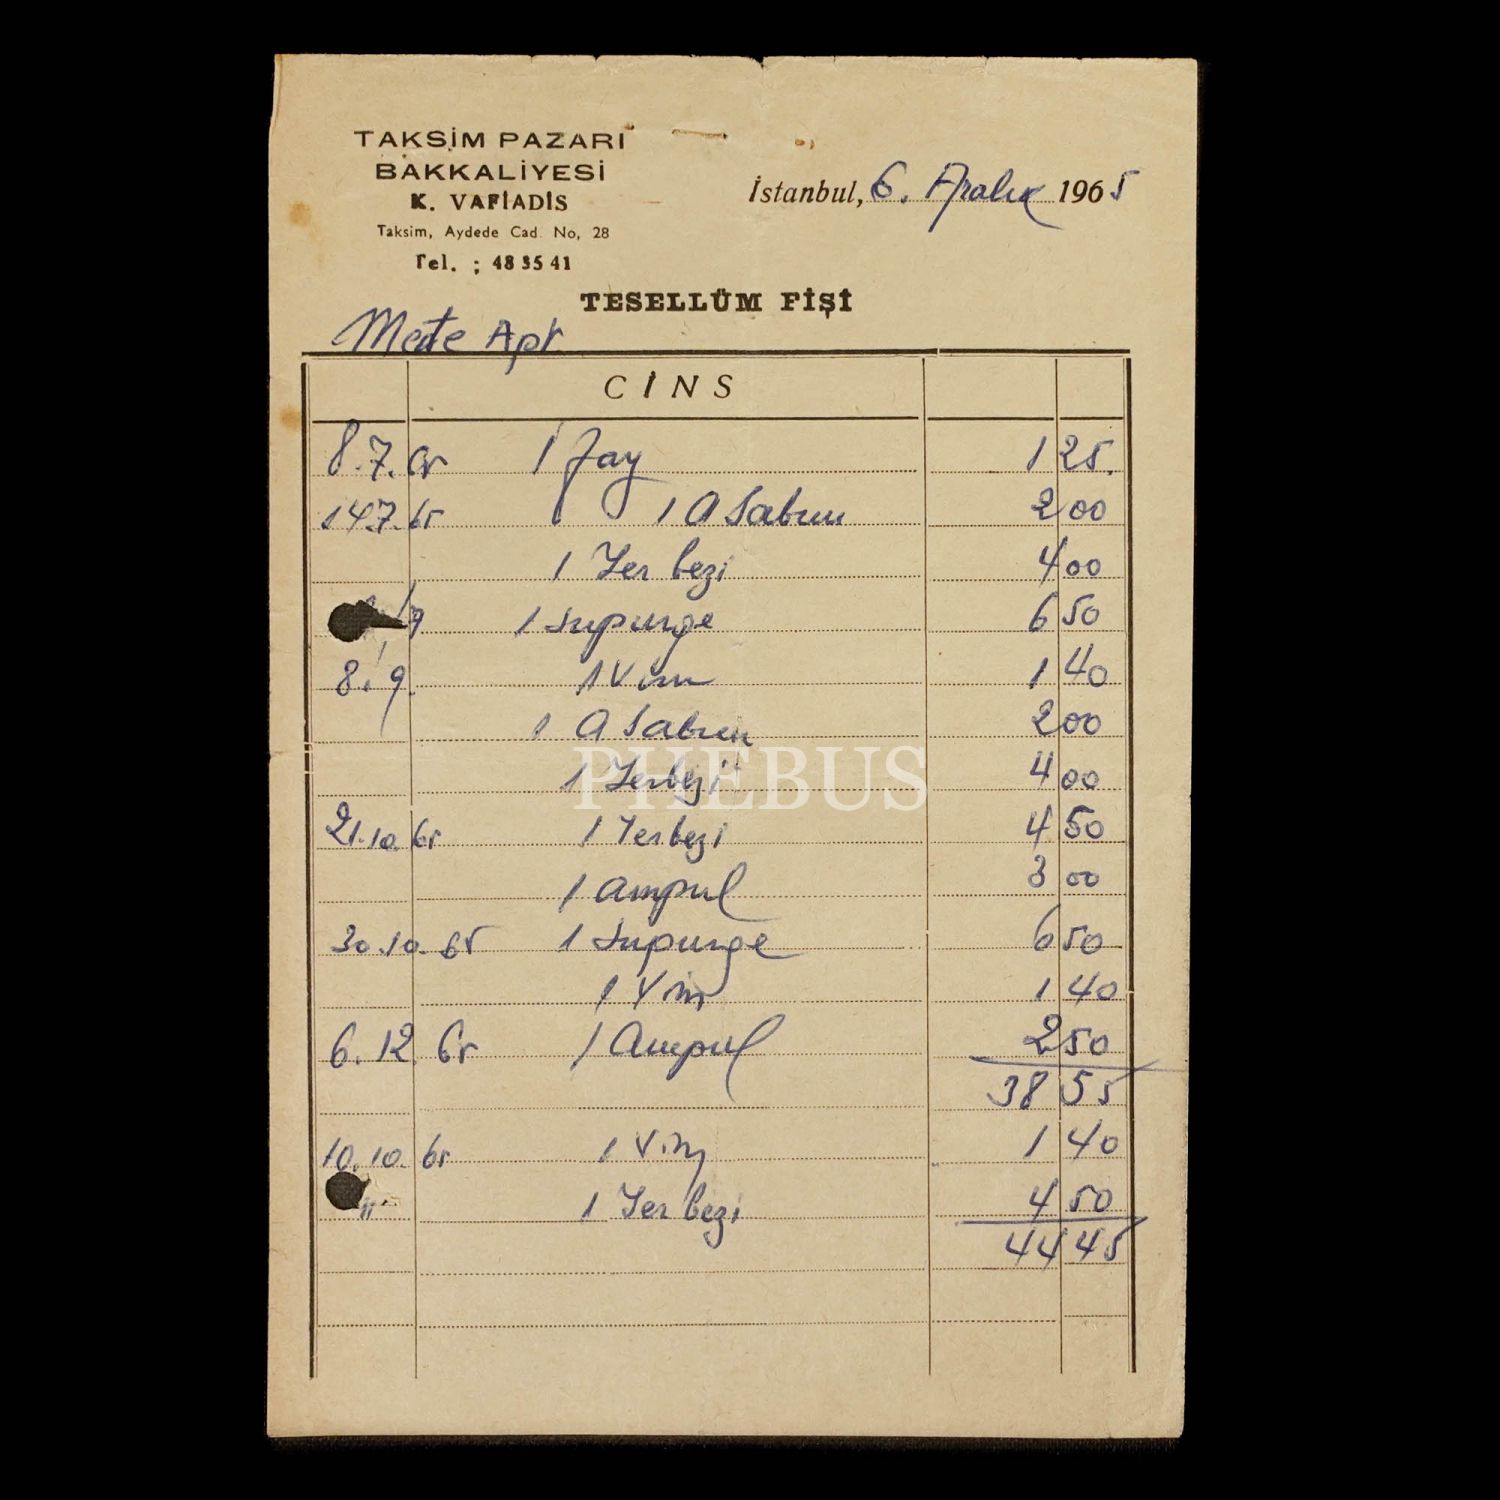 TAKSİM PAZARI
BAKKALİYESİ
K. VAFİADİS
Taksim, Aydede Cad. No, 28
Tel. ; 48 35 41
İstanbul, 6. Aralık 1965
TESELLÜM FİŞİ
Mete Apt
CİNS
8.7.65 1 Fay 1 25.
14.7.65 1 A Sabun 2 00
1 Yer bezi 4 00
/7 1 Süpürge 6 50
8.9. 1 Vim 1 40
1 A Sabun 2 00
1 Yer bezi 4 00
PHEBUS
21.10.65 1 Yer bezi 4 50
1 Ampul 3 00
30.10.65 1 Süpürge 6 50
1 Vim 1 40
6.12.65 1 Ampul 2 50
38 55
10.10.65 1 Vim 1 40
" 1 Yer bezi 4 50
44 45